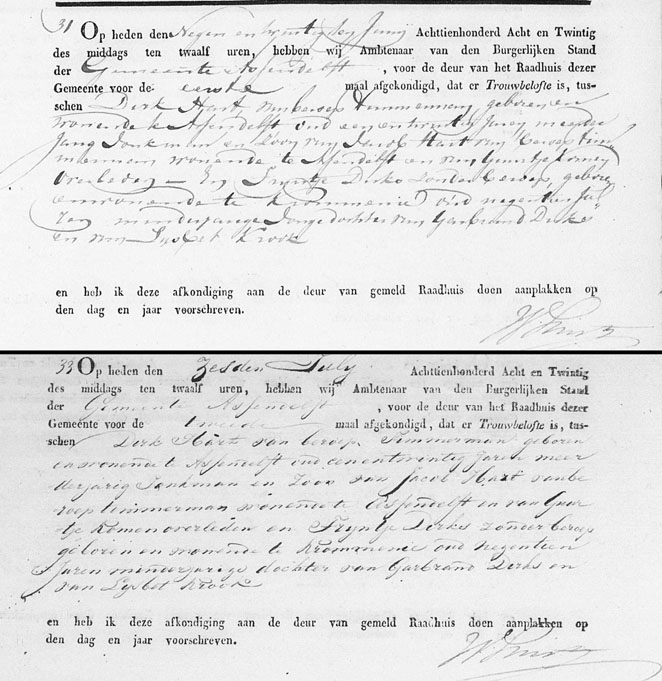 31 Op heden den Negen en twintigsten Junij Achttienhonderd Acht en Twintig
des middags ten twaalf uren, hebben wij Ambtenaar van den Burgerlijken Stand
der Gemeente Assendelft , voor de deur van het Raadhuis dezer
Gemeente voor de eerste maal afgekondigd, dat er Trouwbelofte is, tus-
schen Dirk Hart van beroep Timmerman, geboren en
wonende te Assendelft oud een en twintig Jaren meerder
Jarig Jonkman en Zoon van Jacob Hart van beroep tim
merman wonende te Assendelft en van Guurtje Komen
Overleden — En Trijntje Dirks Zonder beroep, geboren
en wonende te Krommenie oud negentien Ja
ren minderjarige Jonge dochter van Garbrand Dirks
en van Lysbet Krook
en heb ik deze afkondiging aan de deur van gemeld Raadhuis doen aanplakken op
den dag en jaar voorschreven.
33 Op heden den Zesden July Achttienhonderd Acht en Twintig
des middags ten twaalf uren, hebben wij Ambtenaar van den Burgerlijken Stand
der Gemeente Assendelft , voor de deur van het Raadhuis dezer
Gemeente voor de tweede maal afgekondigd, dat er Trouwbelofte is, tus-
schen Dirk Hart van beroep Timmerman geboren
en wonende te Assendelft oud een en twintig Jaren meer
derjarig Jonkman en Zoon van Jacob Hart van be
roep timmerman wonende te Assendelft en van Guur
tje Komen overleden en Tryntje Dirks Zonder beroep
geboren en wonende te Krommenie oud negentien
Jaren minderjarige dochter van Garbrand Dirks en
van Lysbet Krook
en heb ik deze afkondiging aan de deur van gemeld Raadhuis doen aanplakken op
den dag en jaar voorschreven.